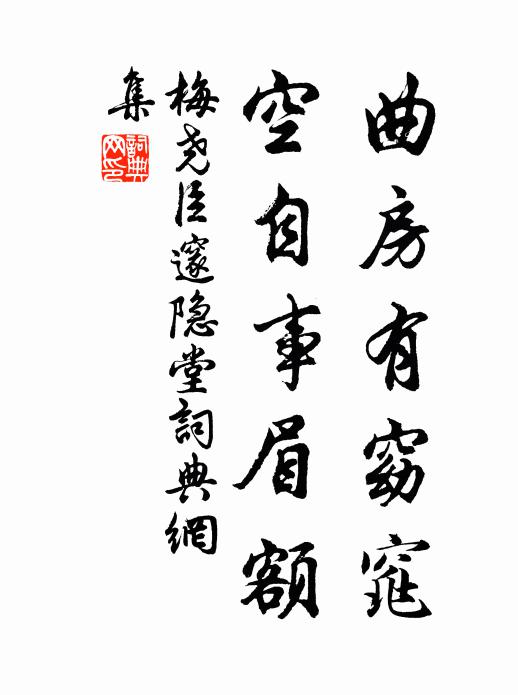 曲房有窈窕
空自事眉额
梅尧臣邃隐堂詞典網
集
詞典网印